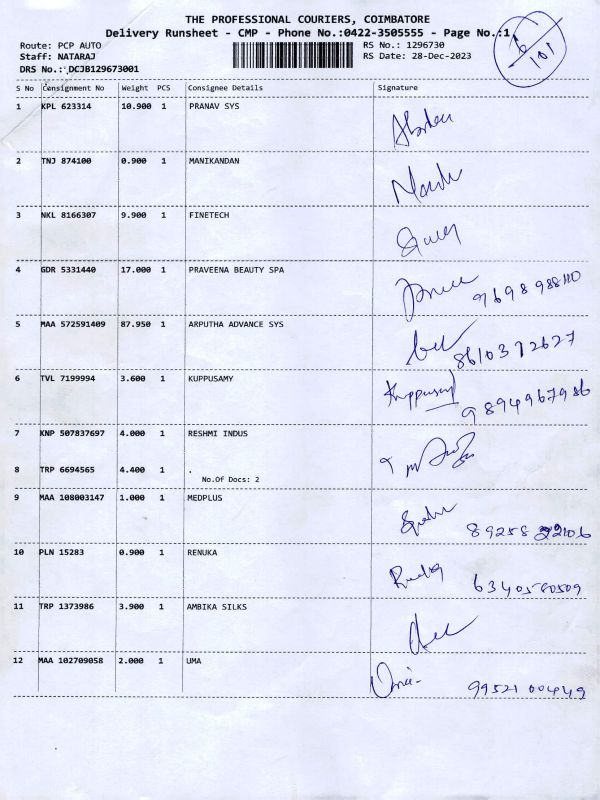 THE PROFESSIONAL COURIERS, COIMBATORE
Delivery Runsheet - CMP - Phone No.:0422-3505555 - Page No.:1
Route: PCP AUTO RS No.: 1296730
Staff: NATARAJ RS Date: 28-Dec-2023
DRS No.: DCJB129673001
6/101
S No Consignment No Weight PCS Consignee Details Signature
1 KPL 623314 10.900 1 PRANAV SYS
2 TNJ 874100 0.900 1 MANIKANDAN
3 NKL 8166307 9.900 1 FINETECH
4 GDR 5331440 17.000 1 PRAVEENA BEAUTY SPA
5 MAA 572591409 87.950 1 ARPUTHA ADVANCE SYS
8610372627
6 TVL 7199994 3.600 1 KUPPUSAMY Kuppusamy
9894967986
7 KNP 507837697 4.000 1 RESHMI INDUS
8 TRP 6694565 4.400 1 .
No.Of Docs: 2
9 MAA 108003147 1.000 1 MEDPLUS
10 PLN 15283 0.900 1 RENUKA
11 TRP 1373986 3.900 1 AMBIKA SILKS
12 MAA 102709058 2.000 1 UMA
Uma 9952100449